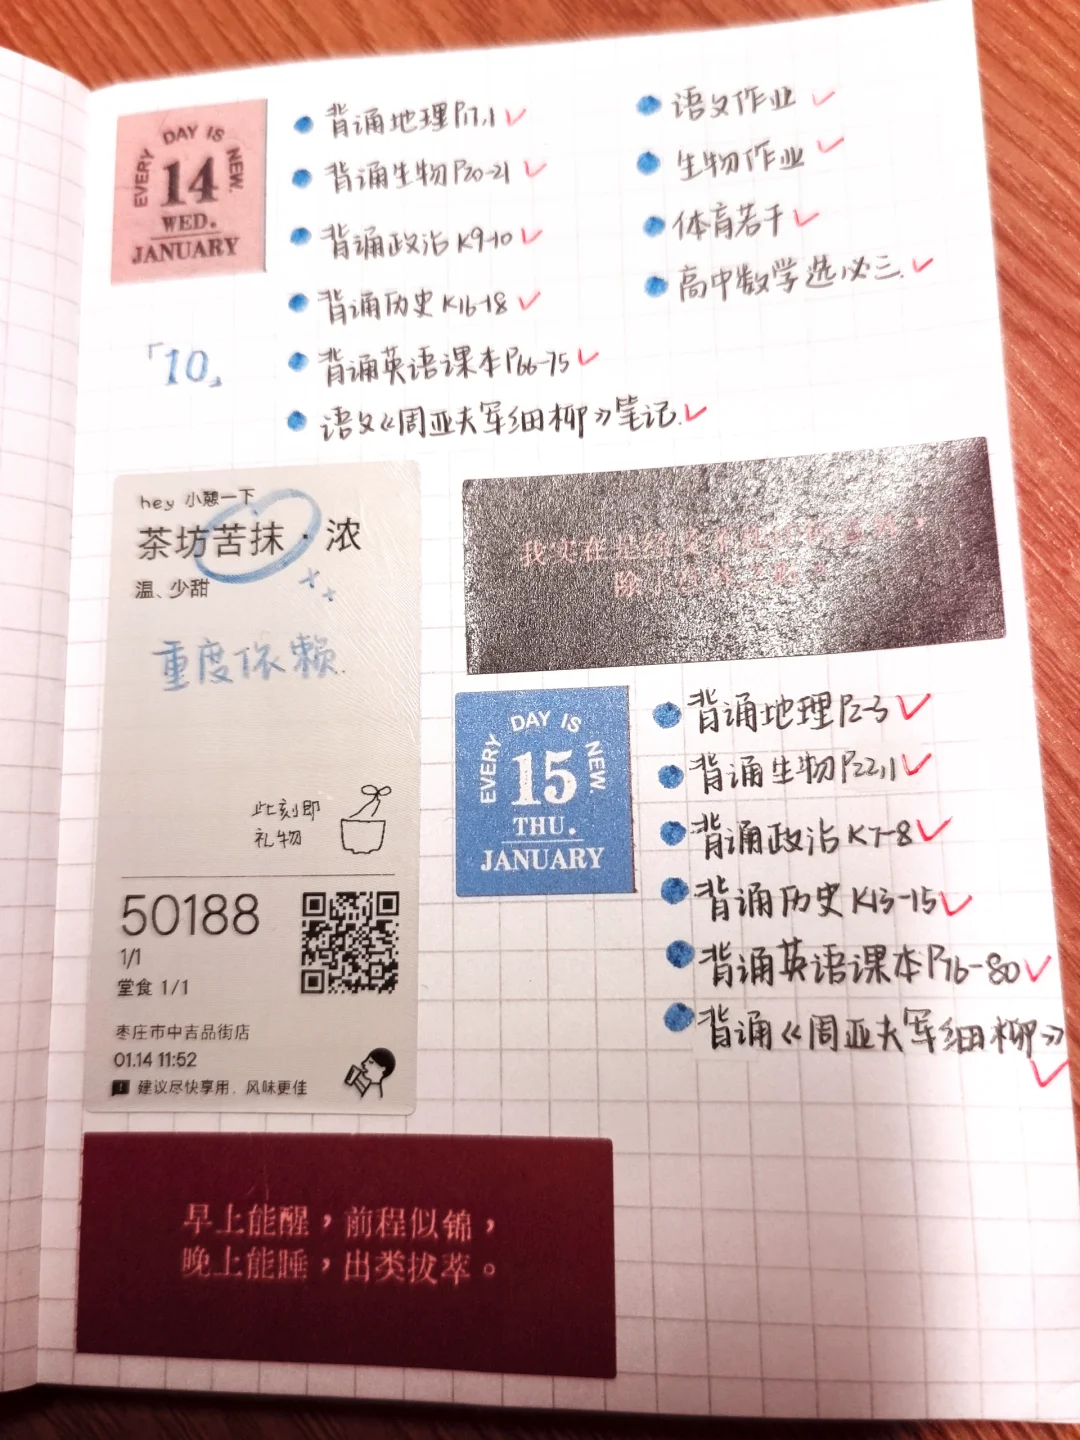 EVERY DAY IS NEW.
14
WED.
JANUARY
「10」
背诵地理P17,1
背诵生物P20-21
背诵政治K9-10
背诵历史K16-18
背诵英语课本P66-75
语文《周亚夫军细柳》笔记.
语文作业
生物作业
体育若干
高中数学选必三.
hey 小憩一下
茶坊苦抹·浓
温、少甜
重度依赖.
此刻即
礼物
50188
1/1
堂食 1/1
枣庄市中吉品街店
01.14 11:52
建议尽快享用，风味更佳
我实在
除了
EVERY DAY IS NEW.
15
THU.
JANUARY
背诵地理P2-3
背诵生物P22,1
背诵政治K7-8
背诵历史K13-15
背诵英语课本P76-80
背诵《周亚夫军细柳》
早上能醒，前程似锦，
晚上能睡，出类拔萃。